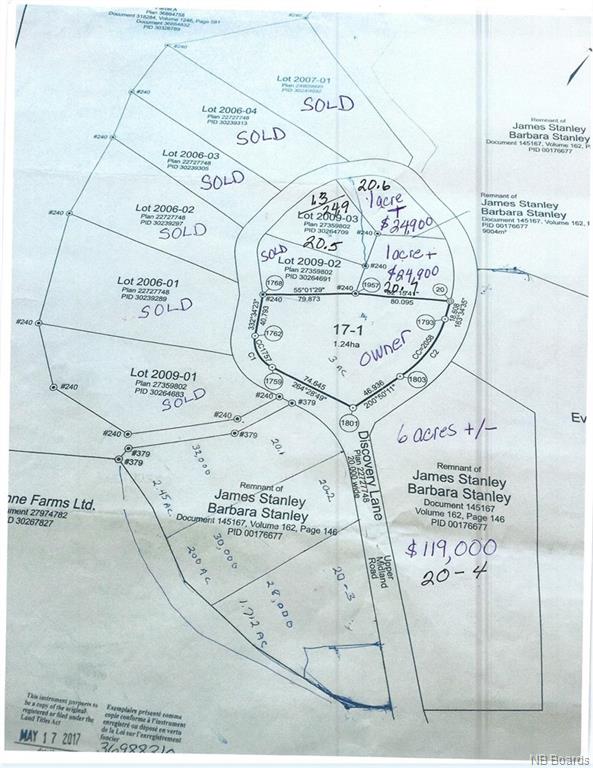 Plan 36894758
Document 318284, Volume 1246, Page 581
Document 36894832
PID 30328789
#240
Lot 2007-01
SOLD
#240
Lot 2006-04
Plan 22727748
PID 30239313
SOLD
#240
Lot 2006-03
Plan 22727748
PID 30239305
SOLD
#240
Lot 2006-02
Plan 22727748
PID 30239297
SOLD
Lot 2006-01
Plan 22727748
PID 30239289
SOLD
#240
Lot 2009-01
Plan 27359802
PID 30264683
SOLD
#240
#240
#240
#379
#379
#379
#379
Remnant of
James Stanley
Barbara Stanley
Document 145167, Volume 162, P
PID 00176677
Remnant of
James Stanley
Barbara Stanley
Document 145167, Volume 162,
PID 00176677
9004m²
20.6
1 acre
+
$24,900
1.3
249
2009-03
Plan 27359802
PID 30264709
#240
20.5
SOLD
Lot 2009-02
Plan 27359802
PID 30264691
#240
1 acre +
$24,900
20.7
1768
#240
55°01'29"
79.873
#240
1957
80.095
20
332°34'23"
40.793
1762
17-1
1.24ha
3 AC
owner
1793
18.808
163°34'35"
CC=2058
C2
CC1757
C1
1759
74.645
264°28'49"
46.936
200°50'11"
1803
1801
Discovery Lane
Plan 22727748
20.000 wide
Upper
Midland
Road
6 acres +/-
Remnant of
James Stanley
Barbara Stanley
Document 145167
Volume 162, Page 146
PID 00176677
$119,000
20-4
Ev
20.1
32,000
2.45 AC
202
Remnant of
James Stanley
Barbara Stanley
Document 145167, Volume 162, Page 146
PID 00176677
30,000
200 AC
28,000
1.712 AC
20-3
nne Farms Ltd.
ument 27974782
D 30267827
This instrument purports to
be a copy of the original
registered or filed under the
Land Titles Act
MAY 17 2017
Exemplaire présenté comme
copie conforme à l'instrument
enregistré ou déposé en vertu
de la Loi sur l'enregistrement
foncier
NB Boards